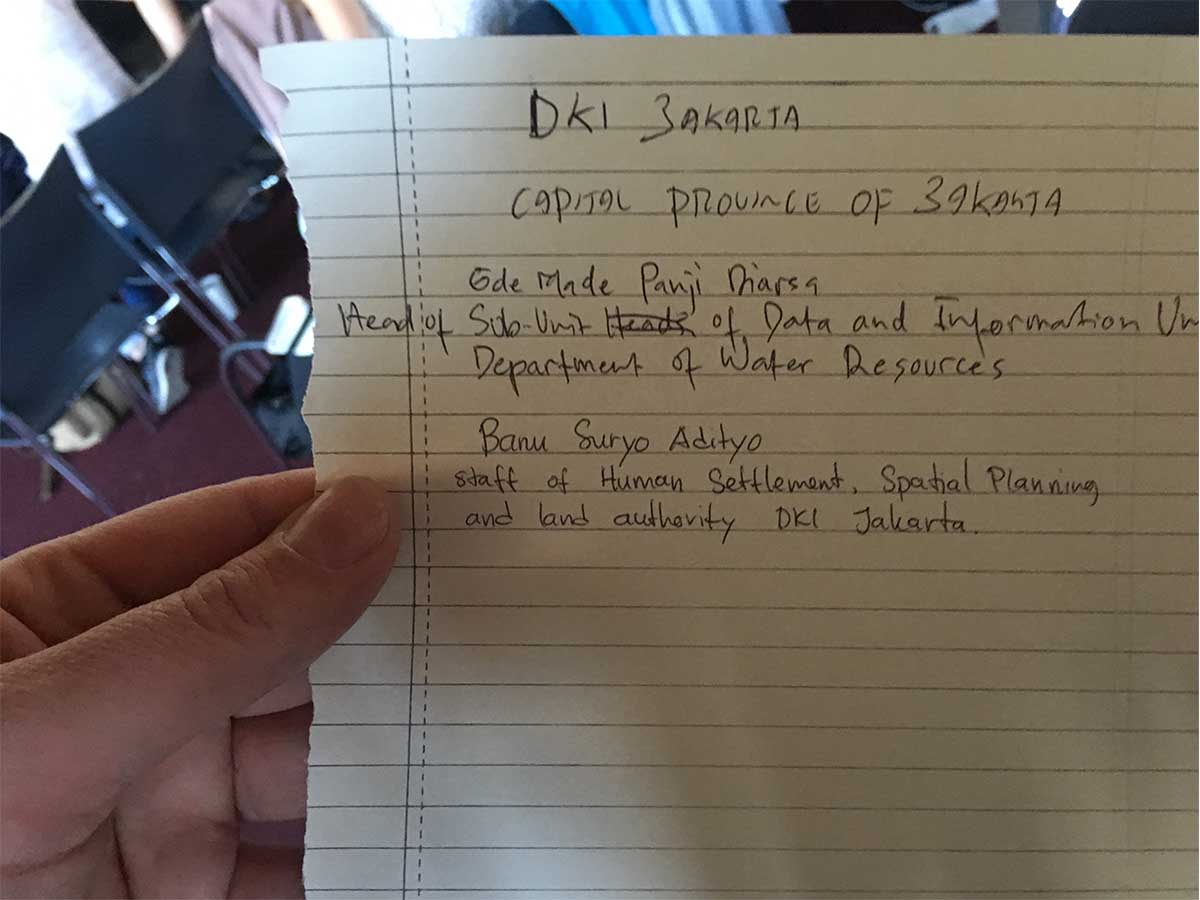 DKI JAKARTA
CAPITAL PROVINCE OF JAKARTA
Gde Made Panji Diarsa
Head of Sub-Unit of Data and Information Un
Department of Water Resources
Banu Suryo Adityo
staff of Human Settlement, Spatial Planning
and land authority DKI Jakarta.